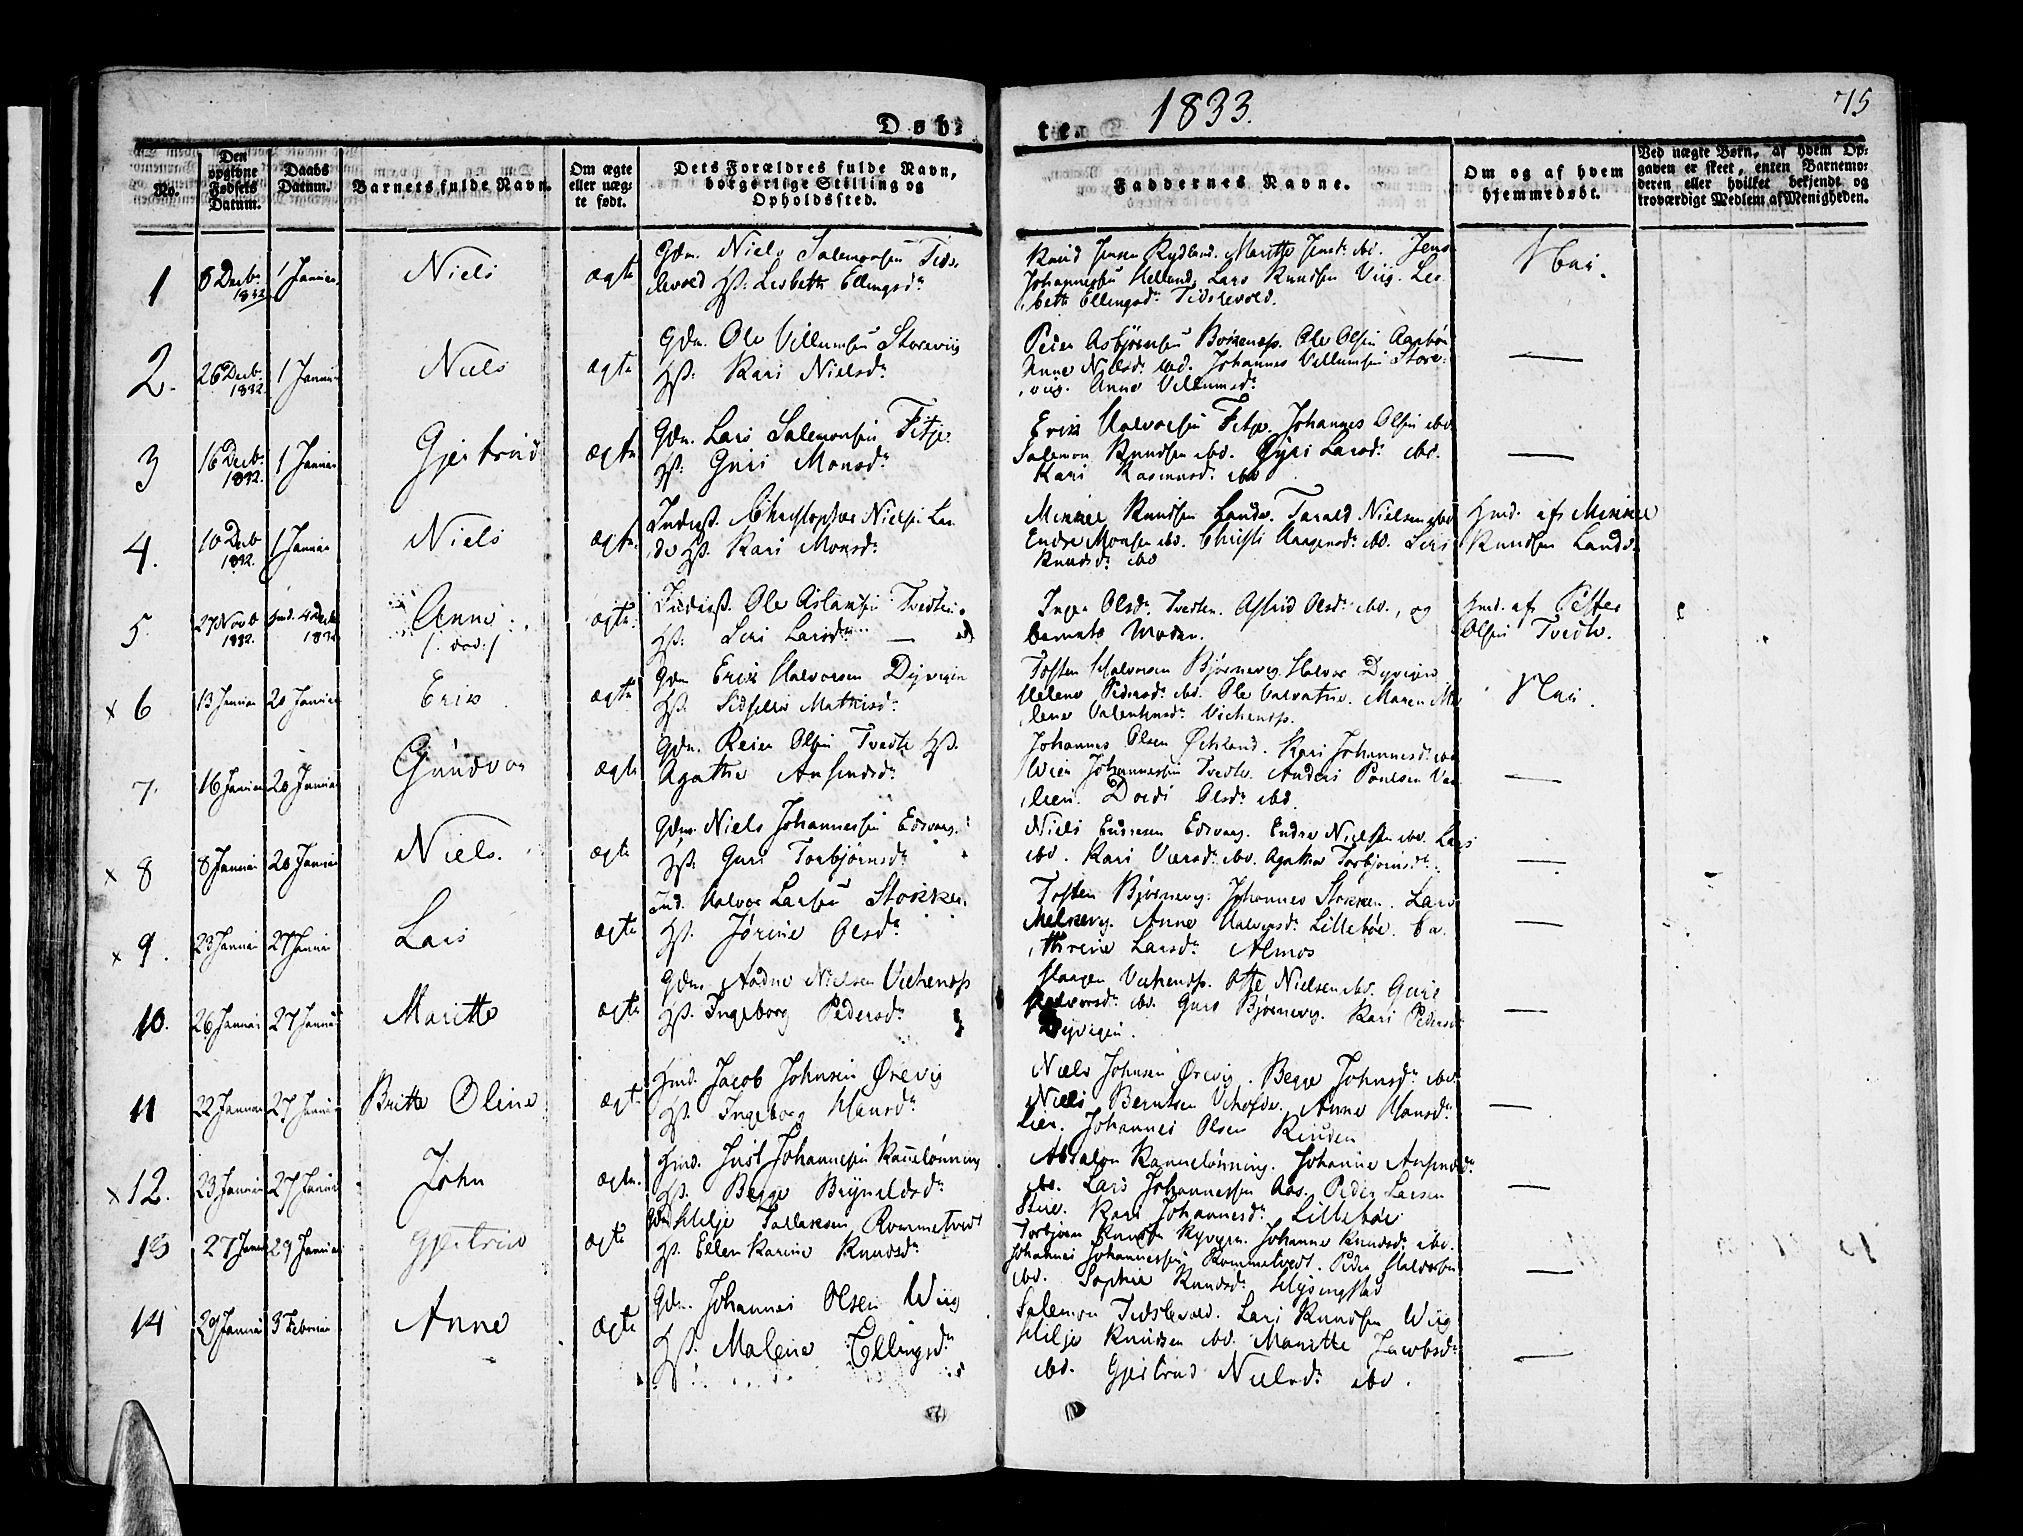 Døb-
te.
1833.
75
No.
Den opgivne Fødsels Datum.
Daabs Datum.
Barnets fulde Navn.
Om ægte eller uæg-te født.
Dets Forældres fulde Navn, borgerlige Stilling og Opholdssted.
Faddernes Navne.
Om og af hvem hjemmedøbt.
Ved uægte Børn, af hvem Op-
gaven er skeet, enten Barnemo-
deren eller hvilket bekjendt og
troværdigt Medlem af Menigheden.
1
8 Decb. 1832
1 Januar
Niels
ægte
Gdm. Niels Salemonsen Tids-
levold Hst. Lisbeth Ellingsdr
Knud Jensen Rydland. Maritte Jensdr ibd. Jens
Johannessen Helland, Lars Knudsen Viig. Lis-
beth Ellingsdr Tidslevold.
Nei.
2.
26 Decb. 1832.
1 Januar
Niels
ægte
Gdm. Ole Villumsen Storeviig
Hst: Kari Nielsdr
Peder Asbjørnsen Ole Olsen
Anne Nielsdr ibd. Johannes Villumsen Store-
viig. Anne Villumsdr
—
3
16 Decb. 1832.
1 Januar
Gjertrud
ægte
Gdm. Lars Salemonsen Fitje.
Hst: Guri Monsdr
Erik Halvorsen Fitje. Johannes Olsen ibd.
Salemon Knudsen ibd. Larsdr ibd.
Kari Rasmusdr ibd
—
4.
10 Decb 1832.
1 Januar
Niels
ægte
Inderst. Christopher Nielsen Lan-
de Hst. Kari Monsdr
Mikkel Knudsen Lande. Tarald Nielsen ibd
Endre Monsen ibd. Christi Aagesdr ibd. Siri
Knudsdr ibd
hmd. af Mikkel
Knudsen Lande
5.
27 Novb 1832.
hmd. 4 Decb 1832
Anne
/: død :/
ægte
Inderst. Ole Aslaksen Tvedten.
Hst: Siri Larsdr —
Inger Olsdr. Tvedten. Astrid Olsdr ibd., og
barnets Moder.
hmd. af Petter
Olsen Tvedte.
x 6
13 Januar
20 Januar
Erik
ægte
Gdm Erik Halvorsen Dyvigen
Hst. Sidselle Mathisdr
Tosten Halvorsen Bjørnevig. Halvor Dyvigen.
Helene Pedersdr ibd. Ole Maren Ma-
lene Valentinsdr
Nei.
7.
16 Januar
20 Januar
Gundvor
ægte
Gdm. Reier Olsen Tvedte Hst.
Agathe Ansendr
Johannes Olsen Økland. Kari Johannesdr ibd
Johannessen Tvedte. Anders Poulsen Va-
len. Dordi Olsdr ibd.
—
x 8
8 Januar
20 Januar
Niels.
ægte
Gdm. Niels Johannessen Edsvaag.
Hst. Guri Torbjørnsdr
Niels Endresen Edsvaag. Endre Nielsen ibd. Lars
ibd. Kari ibd. Agathe Torbjørnsdr.
—
x 9.
23 Januar
27 Januar
Lars
ægte
Ind. Halvor Larsen Stokken.
Hst. Jørine Olsdr
Tosten Bjørnevig. Johannes Stokken. Lars
Melkevig. Anne Halvorsdr Lillebøe. Ca-
thrine Larsdr Almos
—
10.
26 Januar
27 Januar
Maritte
ægte
Gdm Aadne Nielsen
Hst. Ingeborg Pedersdr
Haagen Nielsen ibd. Guri
Halvorsdr ibd. Guro Bjørnevig. Kari Pedersdr
Dyvigen.
—
11
22 Januar
27 Januar
Britte Oline
ægte
Hmd. Jacob Johnsen Ørevig
Hst. Ingeborg Hansdr
Niels Johnsen Ørevig. Begge Johnsdr ibd.
Niels Berntsen Anne Hansdr
Lien. Johannes Olsen
—
x 12.
23 Januar
27 Januar
John
ægte
Hmd. Just Johannessen Rameløning
Hst. Begge Brynildsdr
Absalon Rameløning. Johanne Ansendr
ibd. Lars Johannessen Aas. Peder Larsen
Kari Johannesdr Lillebøe
—
13
27 Januar
29 Januar
Gjertrud
ægte
Gdm Helje Tollaksen Rommetvedt
Hst. Ellen Karine Knudsdr
Torbjørn Knudsen Johanne Knudsdr ibd.
Johannes Johannessen Rommetvedt. Peder Halvorsen
ibd. Sophie Knudsdr Hysingstad
—
14
29 Januar
3 Februar
Anne
ægte
Gdm. Johannes Olsen Wiig
Hst. Malene Ellingsdr
Salemon Tidslevold. Lars Knudsen Wiig
Hilje Knudsen ibd. Maritte Jacobsdr
ibd. Gjertrud Nielsdr ibd.
—